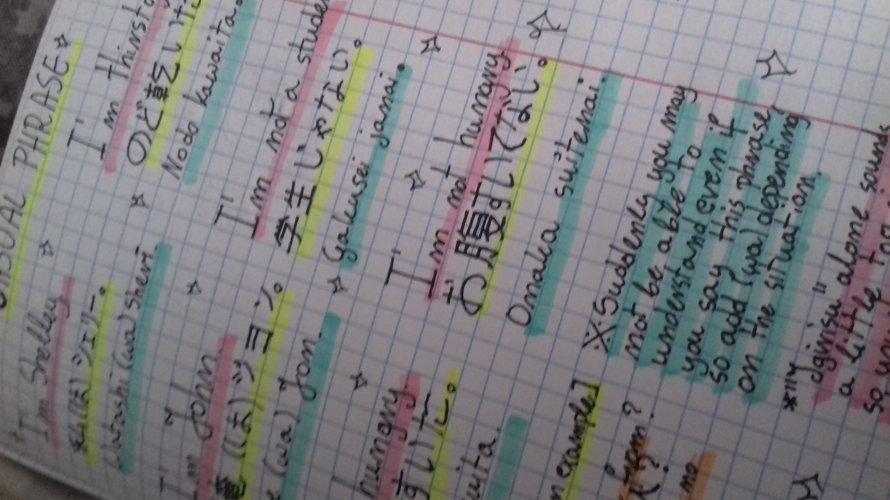 USUAL PHRASE
I'm Shelley
私(は)シェリー。
Watashi (wa) sheri
I'm John.
(は)ジョン。
(wa) Jon.
hungry
すいた。
I'm thirsty
のど乾いた
Nodo kawaita.
I'm not a student
学生じゃない。
Gakusei janai.
I'm not hungry
お腹すいてない。
Onaka suitenai.
※Suddenly you may
not be able to
understand even if
you say this phrase,
so add (wa) depending
on the situation.
example]
from?
no
alone sounds
a little